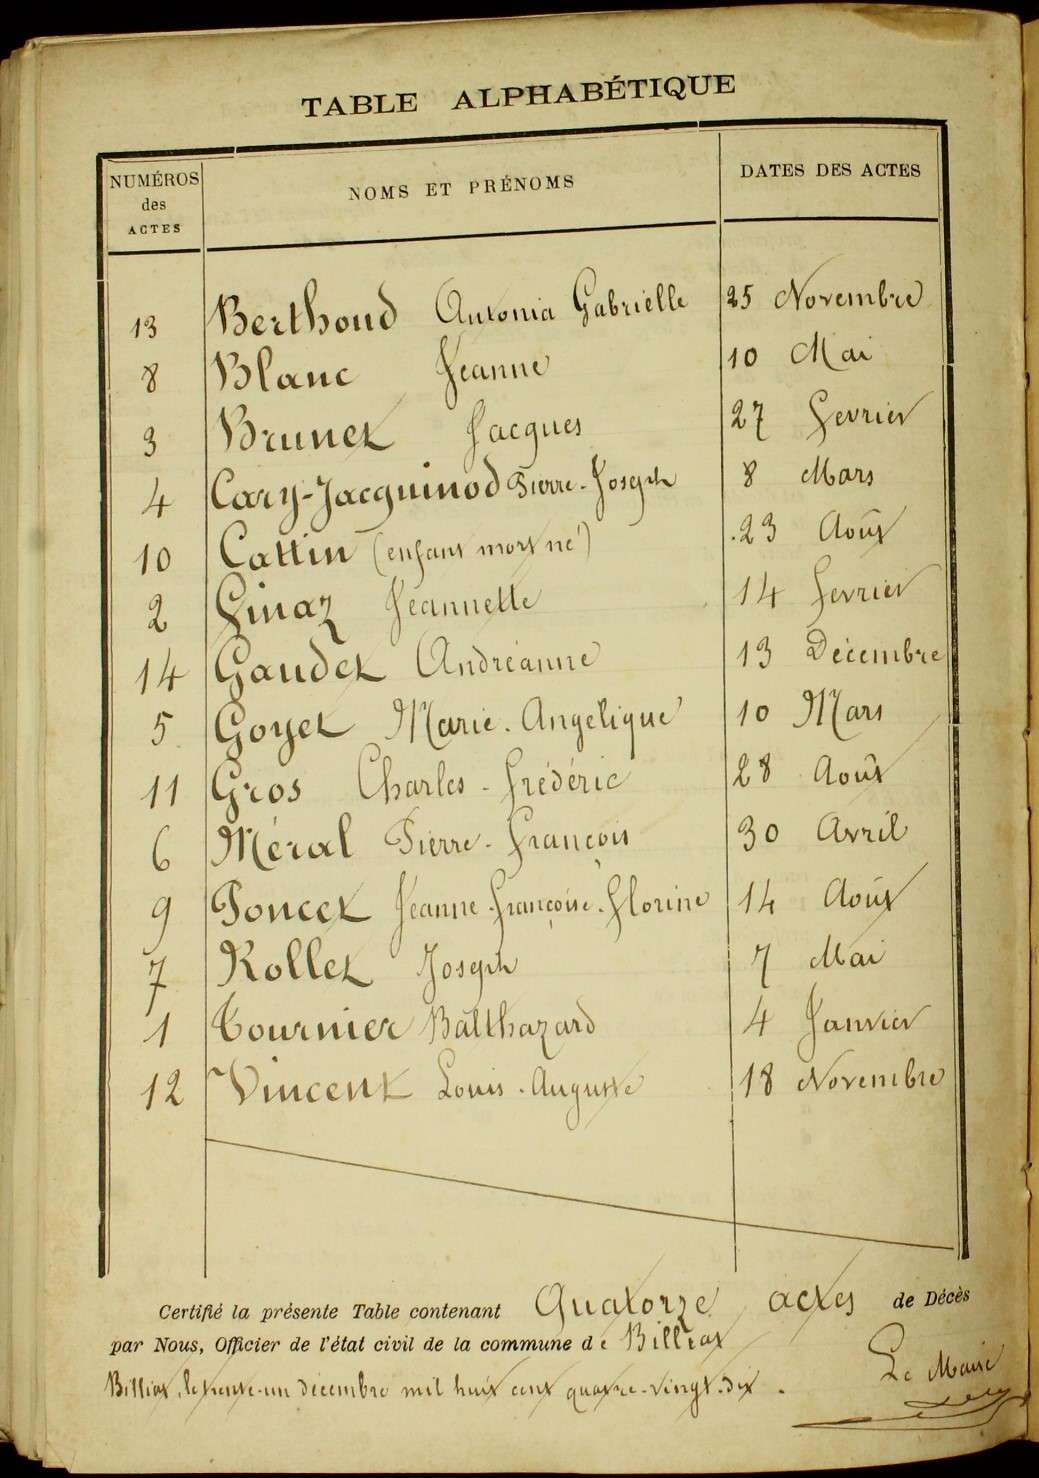 TABLE ALPHABÉTIQUE
NUMÉROS des ACTES NOMS ET PRÉNOMS DATES DES ACTES
13 Berthoud Antonia Gabrielle 25 Novembre
8 Blanc Jeanne 10 Mai
3 Brunet Jacques 27 Fevrier
4 Cary-Jacquinod Pierre-Joseph 8 Mars
10 Cattin (enfant mort né) 23 Août
2 Finaz Jeannette 14 Fevrier
14 Gaudet Andréanne 13 Décembre
5 Goyet Marie-Angelique 10 Mars
11 Gros Charles-Frédéric 28 Août
6 Méral Pierre-François 30 Avril
9 Poncet Jeanne-Françoise-Florine 14 Août
7 Rollet Joseph 7 Mai
1 Tournier Balthazard 4 Janvier
12 Vincent Louis-Auguste 18 Novembre
Certifié la présente Table contenant Quatorze actes de Décès
par Nous, Officier de l'état civil de la commune de Billiat
Billiat, le trente-un décembre mil huit cent quatre-vingt-dix.
Le Maire